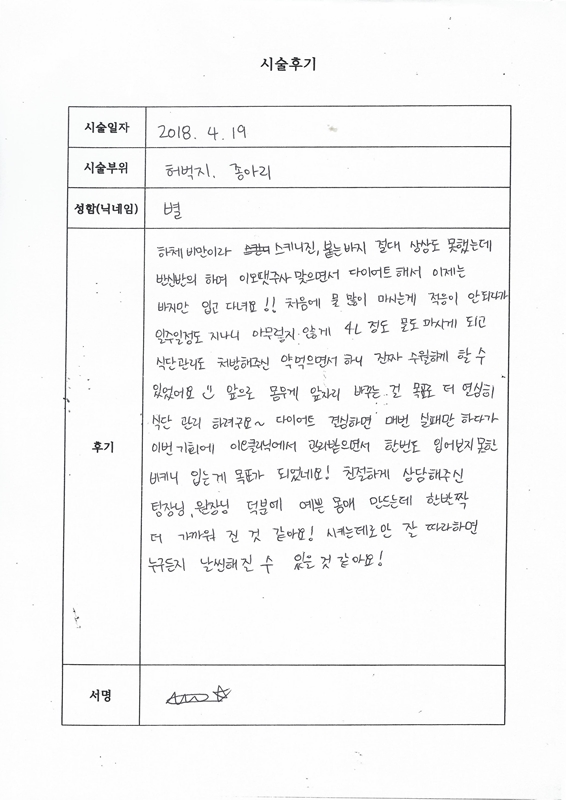 시술후기
시술일자 2018. 4. 19
시술부위 허벅지, 종아리
성함(닉네임) 별
후기
하체 비만이라 스키니진, 붙는바지 절대 상상도 못했는데
반신반의 하며 이오땡주사 맞으면서 다이어트 해서 이제는
바지만 입고 다녀요!! 처음에 물 많이 마시는게 적응이 안되다가
일주일정도 지나니 아무렇지 않게 4L 정도 물도 마시게 되고
식단관리도 처방해주신 약먹으면서 하니 진짜 수월하게 할 수
있었어요 앞으로 몸무게 앞자리 바꾸는 걸 목표로 더 열심히
식단 관리 하려구요~ 다이어트 결심하면 매번 실패만 하다가
이번 기회에 이오클리닉에서 관리받으면서 한번도 입어보지못한
비키니 입는게 목표가 되었네요! 친절하게 상담해주신
팀장님, 원장님 덕분에 예쁜 몸매 만드는데 한발짝
더 가까워 진 것 같아요! 시키는데로만 잘 따라하면
누구든지 날씬해질 수 있을 것 같아요!
서명